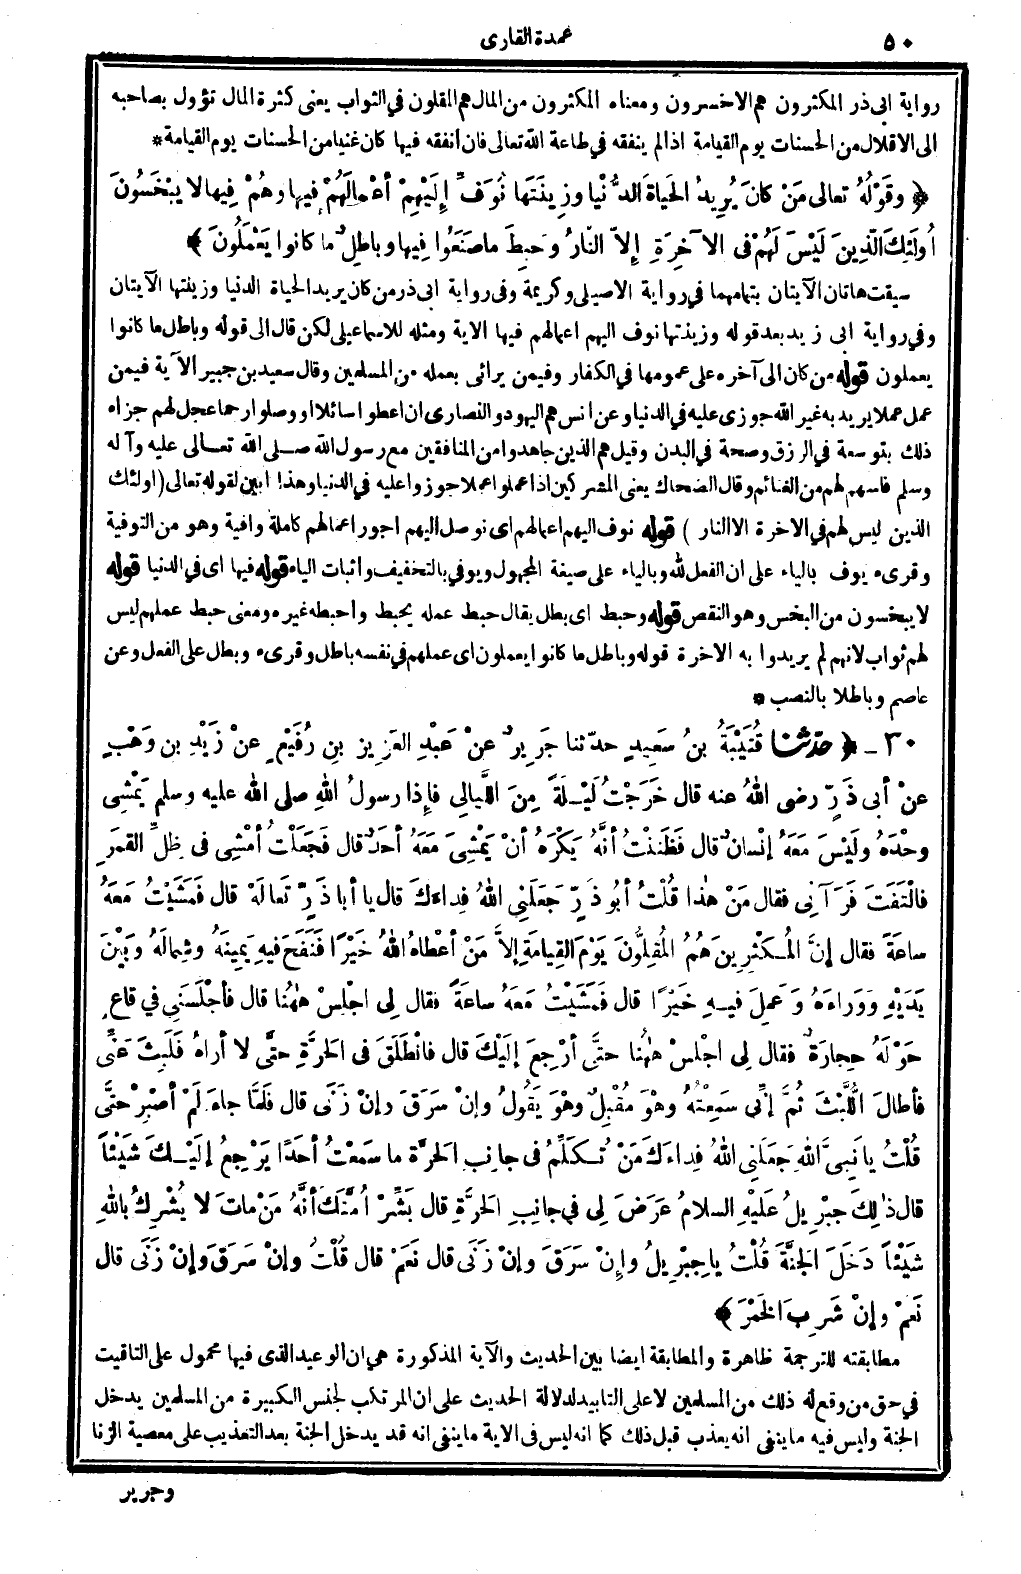 ٥٠
عمدة القارى
رواية ابى ذر المكثرون هم الاخسرون ومعناه المكثرون من المال هم المقلون في الثواب يعنى كثرة المال تؤول بصاحبه
الى الاقلال من الحسنات يوم القيامة اذا لم ينفقه في طاعة الله تعالى فان أنفقه فيها كان غنيا من الحسنات يوم القيامة *
﴿ وقَوْلُهُ تعالى مَنْ كانَ يُرِيدُ الحَياةَ الدُّنْيا وزِينَتَها نُوَفِّ إِلَيْهِمْ أعْمالَهُمْ فِيها وهُمْ فِيها لا يُبْخَسُونَ
أُولَئِكَ الَّذِينَ لَيْسَ لَهُمْ فى الآخِرَةِ إِلاَّ النَّارُ وحَبِطَ ماصَنَعُوا فِيها وباطِلٌ ما كانوا يَعْمَلُونَ ﴾
سيقت هاتان الآيتان بتمامهما في رواية الاصيلى وكريمة وفى رواية ابى ذر من كان يريد الحياة الدنيا وزينتها الآيتان
وفي رواية ابى زيد بعد قوله وزينتها نوف اليهم اعمالهم فيها الاية ومثله للاسماعيلى لكن قال الى قوله وباطل ما كانوا
يعملون قوله من كان الى آخره على عمومها في الكفار وفيمن يرائى بعمله من المسلمين وقال سعيد بن جبير الآية فيمن
عمل عملا يريد به غير الله جوزى عليه في الدنيا وعن انس هم اليهود والنصارى ان اعطوا سائلا او وصلوا رحما عجل لهم جزاء
ذلك بتوسعة في الرزق وصحة في البدن وقيل هم الذين جاهدوا من المنافقين مع رسول الله صلى الله تعالى عليه وآله
وسلم فاسهم لهم من الغنائم وقال الضحاك يعنى المشركين اذا عملوا عملا جوزوا عليه في الدنيا وهذا ابين لقوله تعالى (اولئك
الذين ليس لهم في الاخرة الا النار ) قوله نوف اليهم اعمالهم اى نوصل اليهم اجور اعمالهم كاملة وافية وهو من التوفية
وقرىء يوف بالياء على ان الفعل لله وبالياء على صيغة المجهول ويوفي بالتخفيف واثبات الياء قوله فيها اى في الدنيا قوله
لا يبخسون من البخس وهو النقص قوله وحبط اى بطل يقال حبط عمله يحبط واحبطه غيره ومعنى حبط عملهم ليس
لهم ثواب لانهم لم يريدوا به الاخرة قوله وباطل ما كانوا يعملون اى عملهم في نفسه باطل وقرىء وبطل على الفعل وعن
عاصم وباطلا بالنصب *
٣٠ ـ ﴿ حدّثنا قُتَيْبَةُ بنُ سَعِيدٍ حدّثنا جَرِيرٌ عنْ عَبْدِ العَزِيزِ بنِ رُفَيْعٍ عنْ زَيْدِ بنِ وَهْبٍ
عنْ أبى ذَرٍّ رضى اللهُ عنه قال خَرَجْتُ لَيْلَةً مِنَ اللَّيالِى فإِذا رسولُ اللهِ صلى الله عليه وسلم يَمْشِى
وحْدَهُ ولَيْسَ مَعَهُ إنْسانٌ قال فَظَنَنْتُ أنَّهُ يَكْرَهُ أنْ يَمْشِىَ مَعَهُ أحَدٌ قال فَجَعَلْتُ أمْشِى فى ظِلِّ القَمَرِ
فالْتَفَتَ فَرَآنِى فقال مَنْ هٰذا قُلْتُ أبُو ذَرٍّ جَعَلَنِى اللهُ فِداءَكَ قال يا أبا ذَرٍّ تَعالَهْ قال فَمَشَيْتُ مَعَهُ
ساعَةً فقال إنَّ المُكْثِرِينَ هُمُ المُقِلُّونَ يَوْمَ القِيامَةِ إلاَّ مَنْ أعْطاهُ اللهُ خَيْرًا فَنَفَحَ فِيهِ يَمِينَهُ وشِمالَهُ وبَيْنَ
يَدَيْهِ ووَراءَهُ وَعَمِلَ فِيهِ خَيْرًا قال فَمَشَيْتُ مَعَهُ ساعَةً فقال لِى اجْلِسْ هٰهُنا قال فأجْلَسَنِى فى قاعٍ
حَوْلَهُ حِجارَةٌ فقال لِى اجْلِسْ هٰهُنا حتَّى أرْجِعَ إلَيْكَ قال فانْطَلَقَ فى الحَرَّةِ حتَّى لا أراهُ فَلَبِثَ عَنِّى
فأطالَ اللُّبْثَ ثُمَّ إنِّى سَمِعْتُهُ وهْوَ مُقْبِلٌ وهْوَ يَقُولُ وإنْ سَرَقَ وإنْ زَنَى قال فَلَمَّا جاءَ لَمْ أصْبِرْ حتَّى
قُلْتُ يا نَبِىَّ اللهِ جَعَلَنِى اللهُ فِداءَكَ مَنْ تُكَلِّمُ فى جانِبِ الحَرَّةِ ما سَمِعْتُ أحَدًا يَرْجِعُ إلَيْكَ شَيْئاً
قال ذٰلِكَ جِبْرِيلُ عَلَيْهِ السلامُ عَرَضَ لِى فى جانِبِ الحَرَّةِ قال بَشِّرْ أُمَّتَكَ أنَّهُ مَنْ ماتَ لا يُشْرِكُ باللهِ
شَيْئاً دَخَلَ الجَنَّةَ قُلْتُ يا جِبْرِيلُ وإنْ سَرَقَ وإنْ زَنَى قال نَعَمْ قال قُلْتُ وإنْ سَرَقَ وإنْ زَنَى قال
نَعَمْ وإنْ شَرِبَ الخَمْرَ ﴾
مطابقته للترجمة ظاهرة والمطابقة ايضا بين الحديث والآية المذكورة هي ان الوعيد الذى فيها محمول على التاقيت
في حق من وقع له ذلك من المسلمين لا على التابيد لدلالة الحديث على ان المرتكب لجنس الكبيرة من المسلمين يدخل
الجنة وليس فيه ما ينفى انه يعذب قبل ذلك كما انه ليس فى الاية ما ينفى انه قد يدخل الجنة بعد التعذيب على معصية الزنا
وجرير